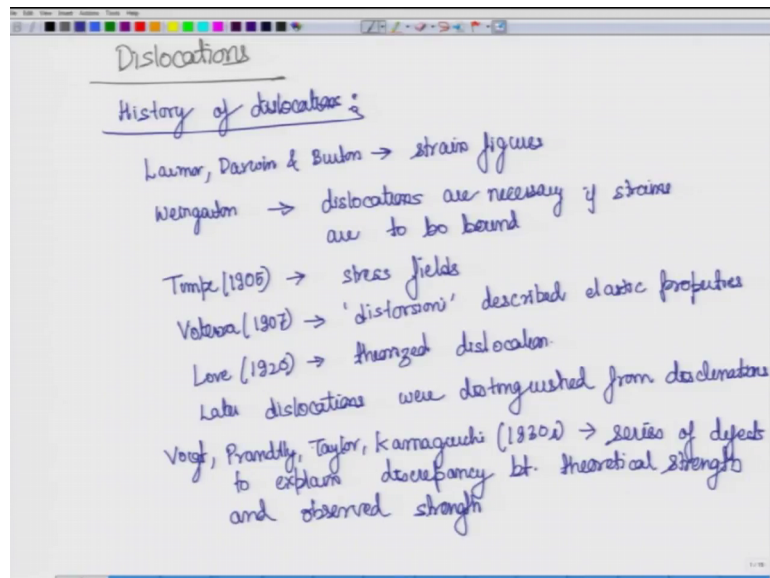 Dislocations
History of dislocations:
Larmor, Darwin & Burton → strain figures
Weingarton → dislocations are necessary if strains
are to be bound
Timpe (1905) → stress fields
Volterra (1907) → 'distorsioni' described elastic properties
Love (1920) → theorized dislocation.
Later dislocations were distinguished from disclinations
Voigt, Prandtly, Taylor, Kamaguichi (1930s) → series of defects
to explain discrepancy bt. theoretical strength
and observed strength